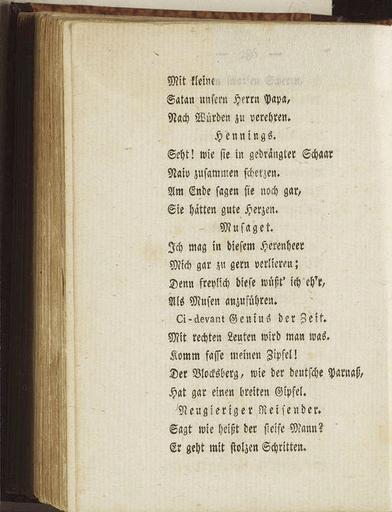 — 286 —
Mit kleinen
Satan unſern Herrn Papa,
Nach Würden zu verehren.
Hennings.
Seht! wie ſie in gedrängter Schaar
Naiv zuſammen ſcherzen.
Am Ende ſagen ſie noch gar,
Sie hätten gute Herzen.
Muſaget.
Ich mag in dieſem Hexenheer
Mich gar zu gern verlieren;
Denn freylich dieſe wüßt' ich eh'r,
Als Muſen anzuführen.
Ci-devant Genius der Zeit.
Mit rechten Leuten wird man was.
Komm faſſe meinen Zipfel!
Der Blocksberg, wie der deutſche Parnaß,
Hat gar einen breiten Gipfel.
Neugieriger Reiſender.
Sagt wie heißt der ſteife Mann?
Er geht mit ſtolzen Schritten.